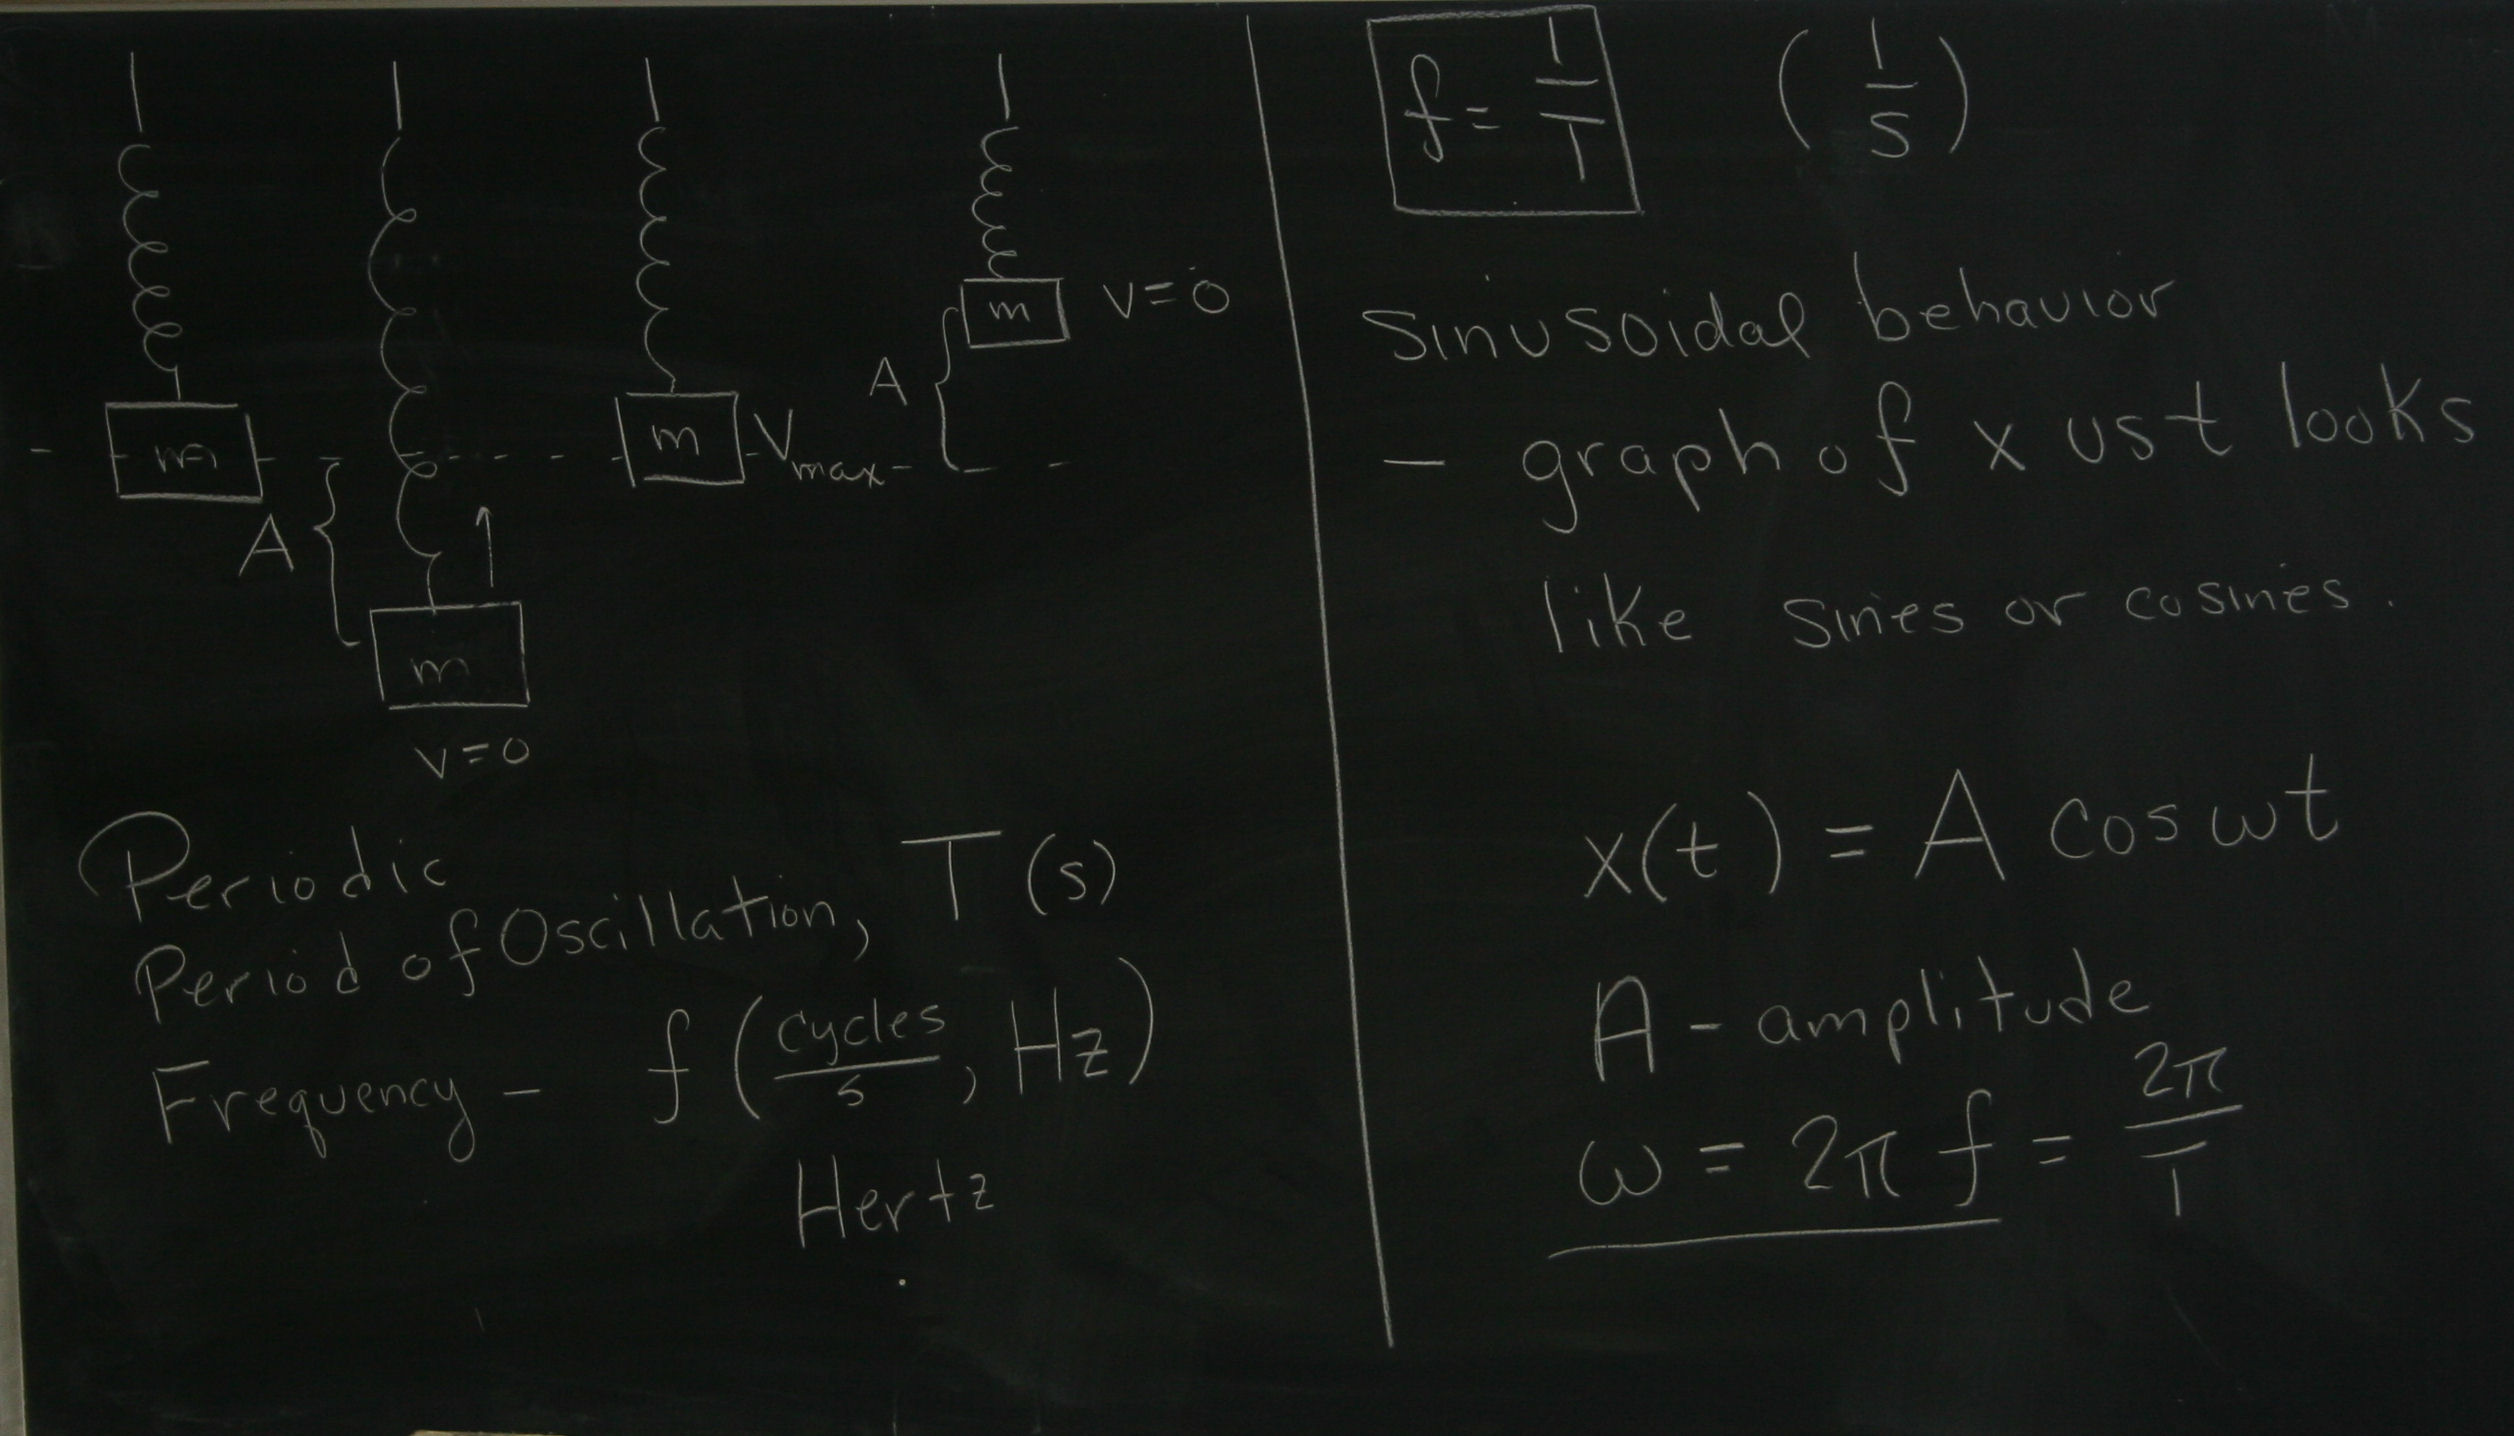 m
m
m
m
v=0
A
Vmax
A
v=0
Periodic
Period of Oscillation, T (s)
Frequency - f (cycles/s, Hz)
Hertz
f = 1/T (1/s)
Sinusoidal behavior
- graph of x vs t looks
like sines or cosines.
x(t) = A cos ωt
A - amplitude
ω = 2π f = 2π/T